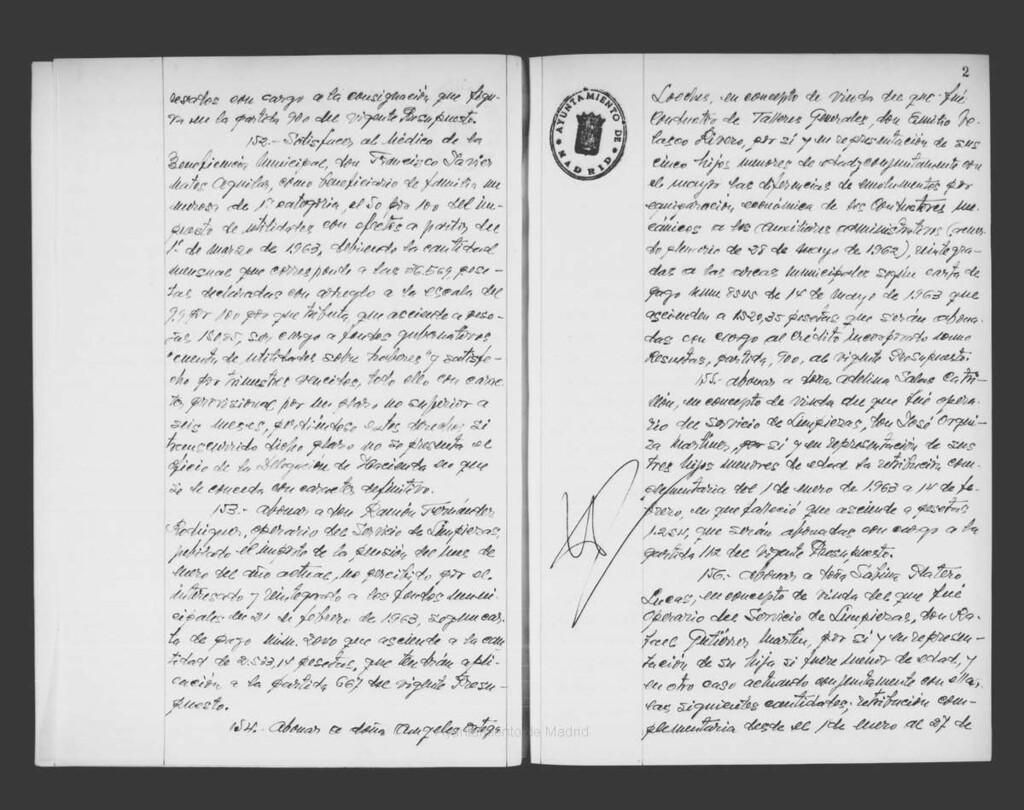 resados con cargo a la consignación que figu-
ra en la partida 900 del vigente Presupuesto.
152.- Satisfacer al Médico de la
Beneficencia Municipal, don Francisco Javier
Matos Aguilar, como beneficiario de familia nu
merosa de 1ª categoría, el 50 por 100 del im-
puesto de utilidades con efectos a partir del
1º de marzo de 1963, debiendo la cantidad
mensual que corresponde a las 36.569 pese-
tas declaradas con arreglo a la escala del
por 100 por que tributa, que asciende a pese-
tas con cargo a fondos gubernativos
"cuenta de utilidades sobre haberes" y satisfe-
cho por trimestres vencidos, todo ello con carác-
ter provisional por un plazo no superior a
seis meses, perdiéndose estos derechos si
transcurrido dicho plazo no se presenta el
oficio de la Delegación de Hacienda en que
se le conceda con carácter definitivo.
153.- Abonar a don Ramón Fernández
Rodríguez, operario del Servicio de Limpiezas,
jubilado el importe de la pensión del mes de
enero del año actual, no percibido por el
interesado y reintegrado a los fondos muni-
cipales en 21 de febrero de 1963, según car-
ta de pago núm. 2000 que asciende a la can
tidad de 2.523,14 pesetas, que tendrán apli-
cación a la partida 667 del vigente Presu-
puesto.
154.- Abonar a doña Angeles
2
AYUNTAMIENTO DE MADRID
Loeches, en concepto de viuda del que fué
Conductor de Talleres Generales, don Emilio Ve-
lasco Rivero, por sí y en representación de sus
cinco hijos menores de edad y conjuntamente con
el mayor las diferencias de emolumentos por
equiparación económica de los Conductores me
cánicos a los Auxiliares administrativos (acuer
do plenario de 28 de mayo de 1962), reintegra-
das a las arcas municipales según carta de
pago núm 8545 de 14 de mayo de 1963 que
ascienden a 1520,35 pesetas que serán abona-
das con cargo al Crédito incorporado como
Resultas, partida, 900, al vigente Presupuesto.
155.- Abonar a doña Adelina Salas Castri-
llón, en concepto de viuda del que fué opera-
rio del servicio de Limpiezas, don José Orqui-
za Martínez, por sí y en representación de sus
tres hijos menores de edad la retribución com-
plementaria del 1 de enero de 1963 a 14 de fe-
brero, en que falleció que asciende a pesetas
1.254, que serán abonadas con cargo a la
partida 112 del vigente Presupuesto.
156.- Abonar a doña Sabina Matero
Lucas, en concepto de viuda del que fué
operario del Servicio de Limpiezas, don Ra-
fael Gutiérrez Martín, por sí y en represen-
tación de su hija si fuere menor de edad, y
en otro caso actuando conjuntamente con ella,
las siguientes cantidades; retribución com-
plementaria desde el 1 de enero al 27 de
Ayuntamiento de Madrid